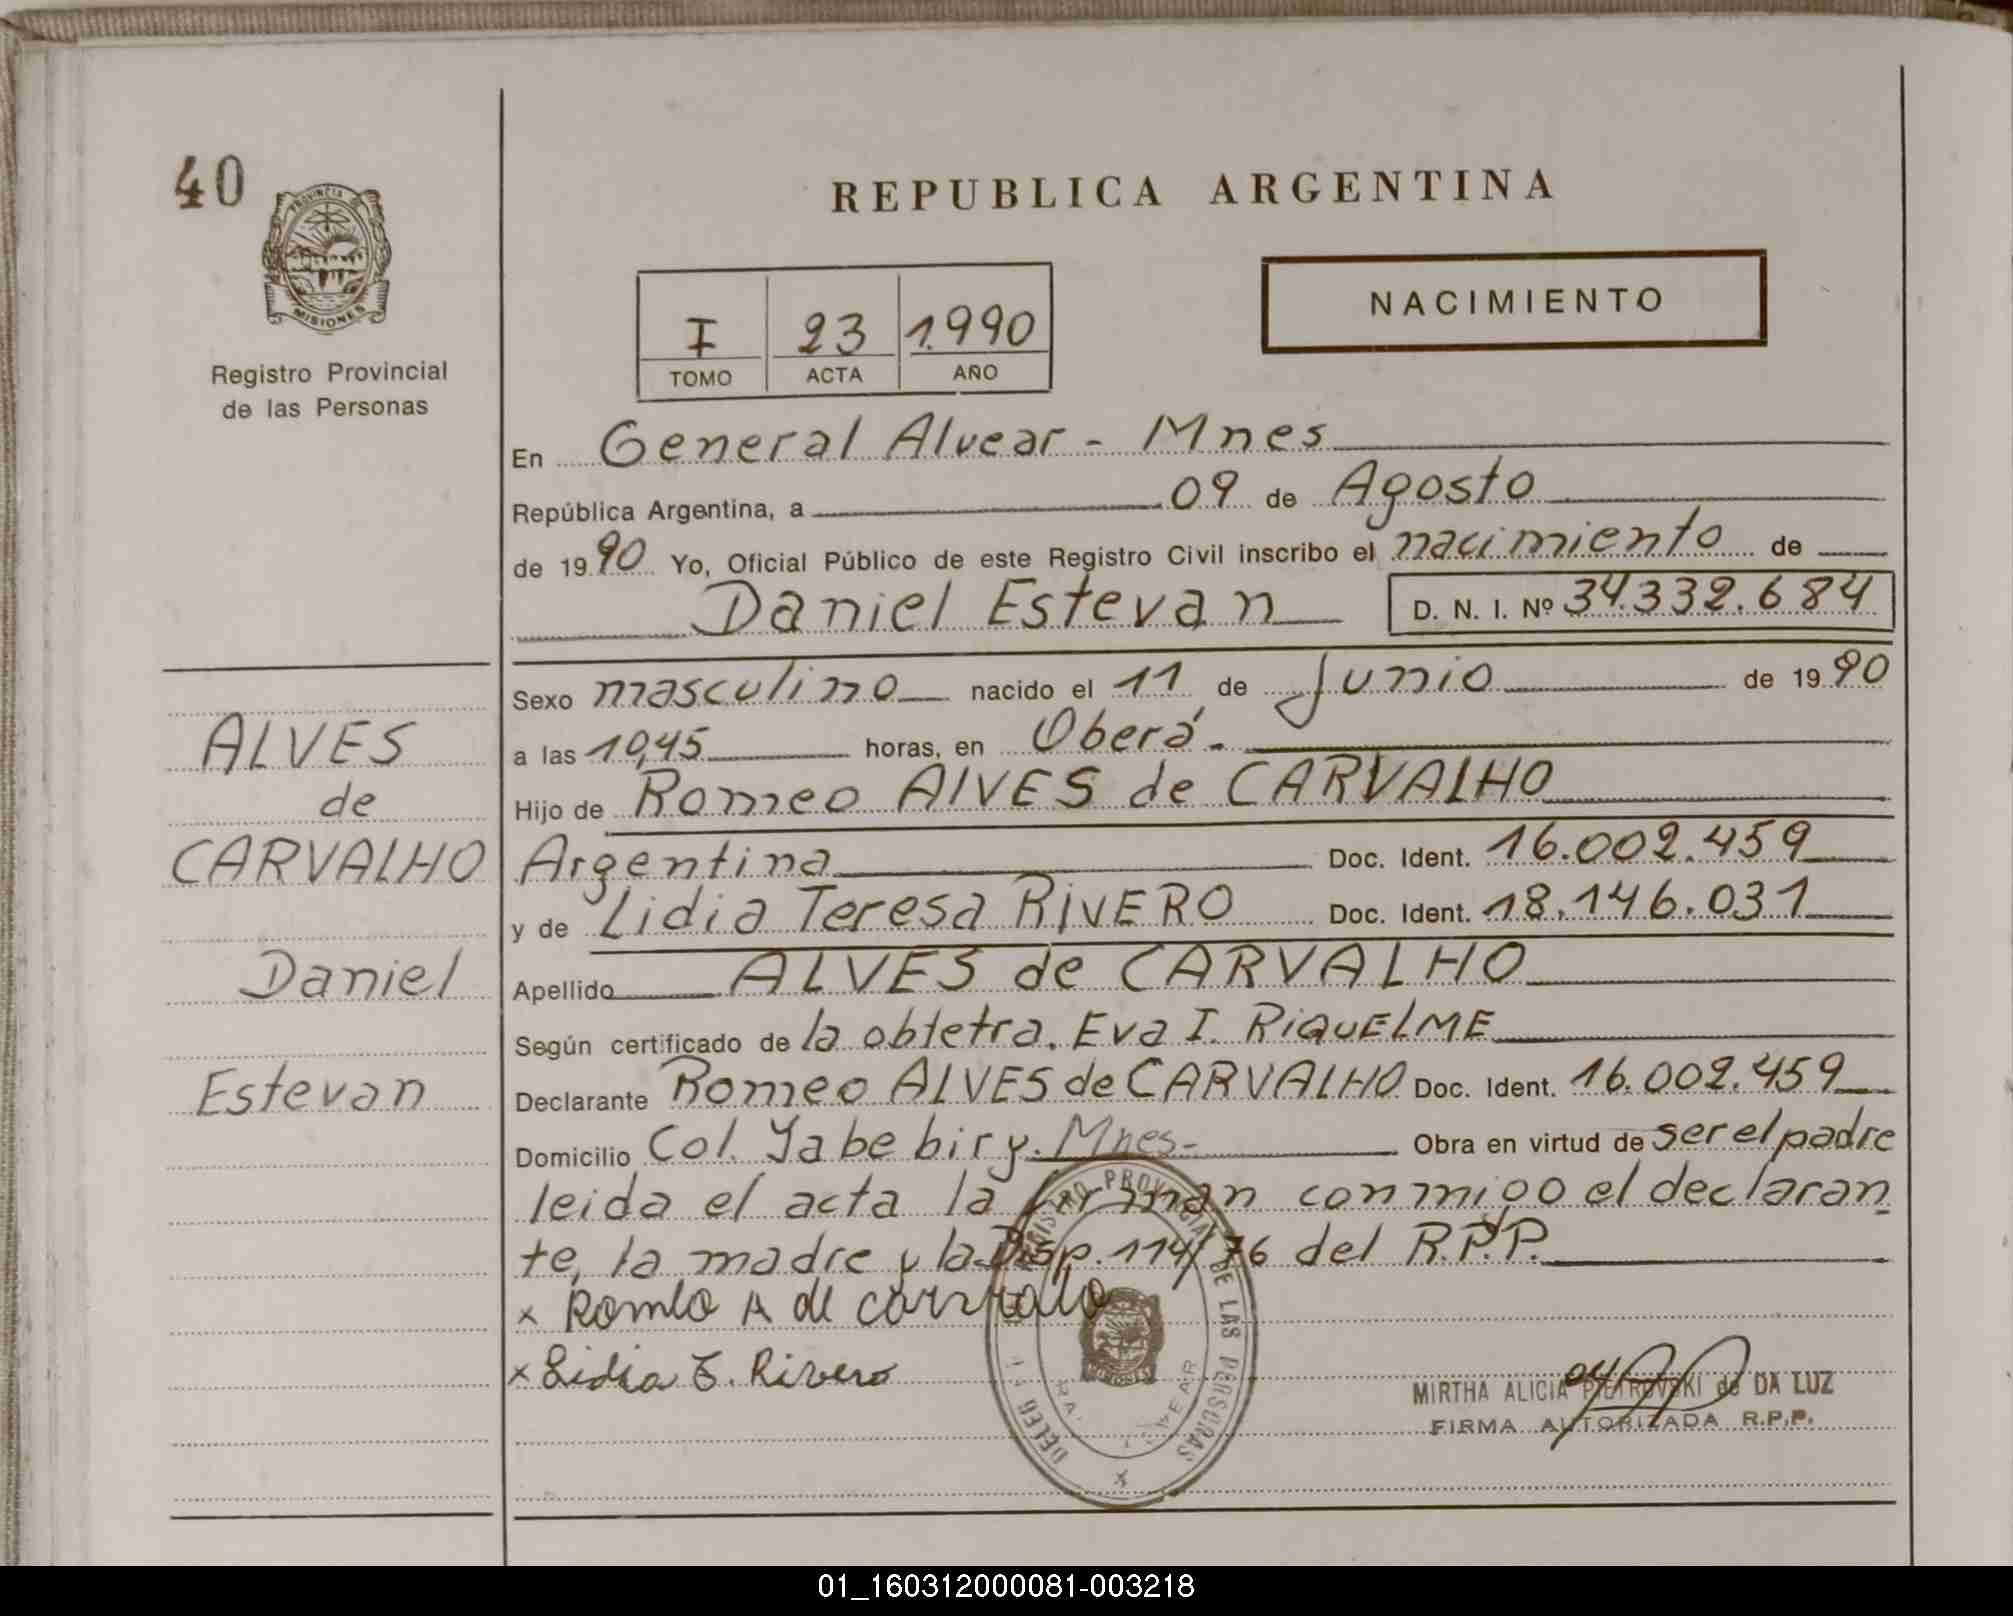 40
PROVINCIA DE
MISIONES
Registro Provincial
de las Personas
REPUBLICA ARGENTINA
NACIMIENTO
I 23 1.990
TOMO ACTA AÑO
En General Alvear - Mnes
República Argentina, a 09 de Agosto
de 1990 Yo, Oficial Público de este Registro Civil inscribo el nacimiento de
Daniel Estevan D. N. I. Nº 34.332.684
Sexo masculino nacido el 11 de Junio de 1990
a las 10,45 horas, en Oberá.
Hijo de Romeo AlVES de CARVALHO
Argentina Doc. Ident. 16.002.459
y de Lidia Teresa RiVERO Doc. Ident. 18.146.031
Apellido ALVES de CARVALHO
Según certificado de la obtetra. Eva I. RiQUELME
Declarante Romeo ALVES de CARVALHO Doc. Ident. 16.002.459
Domicilio Col. Yabebiry. Mnes- Obra en virtud de ser el padre
leida el acta la firman conmigo el declaran
te, la madre y la Disp. 114/76 del R.P.P.
x Romeo A de Carvalo
x Lidia T. Rivero
ALVES
de
CARVALHO
Daniel
Estevan
REGISTRO PROVINCIAL DE LAS PERSONAS
DELEG
MIRTHA ALICIA PIETROVSKI de DA LUZ
FIRMA AUTORIZADA R.P.P.
01_160312000081-003218